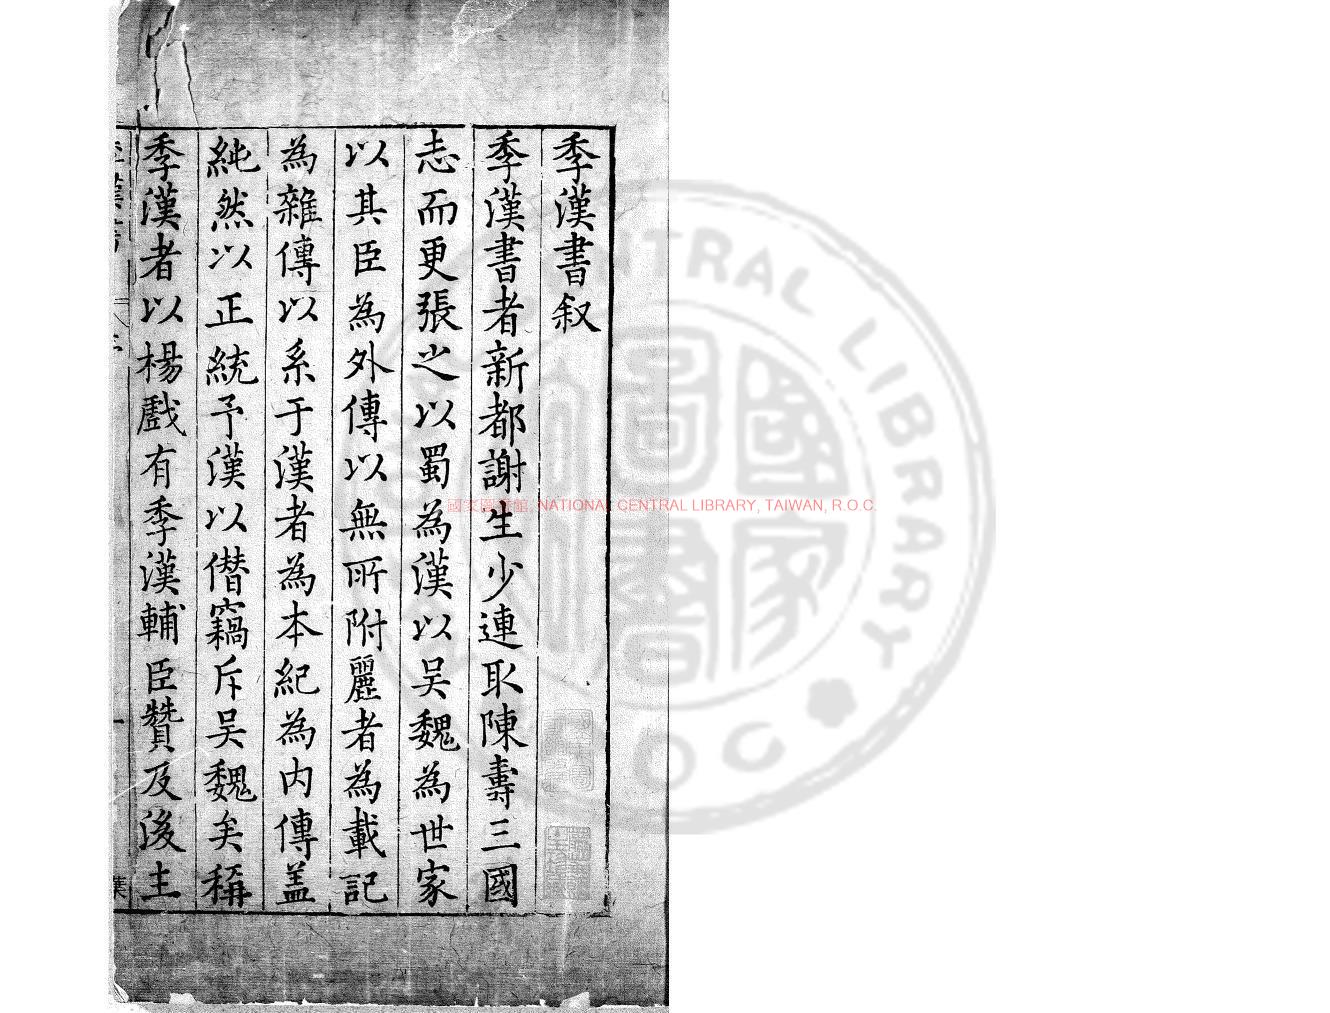 季漢書叙
季漢書者新都謝生少連取陳壽三國
志而更張之以蜀為漢以吴魏為世家
以其臣為外傳以無所附麗者為載記
為雜傳以系于漢者為本紀為内傳盖
純然以正統予漢以僭竊斥吴魏矣稱
季漢者以楊戲有季漢輔臣贊及後主
國家圖書館, NATIONAL CENTRAL LIBRARY, TAIWAN, R.O.C.